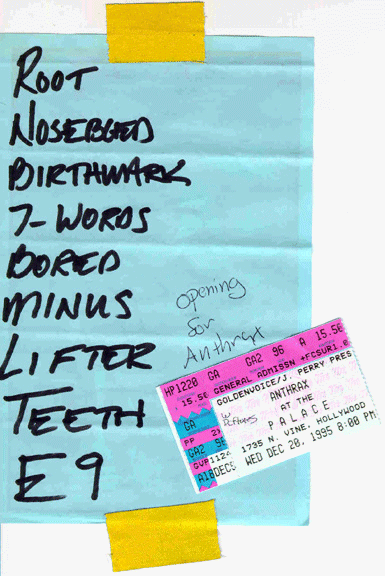 ROOT
NOSEBLEED
BIRTHMARK
7-WORDS
BORED
MINUS
LIFTER
TEETH
E 9
Opening
for
Anthrax
HP1220 GA GA2 96 A 15.50
15.50 GENERAL ADMISSN +FCSUR1.0
GOLDENVOICE/J. PERRY PRES
GA ANTHRAX
w/ Deftones AT THE
PP 2 P A L A C E
GA2 96
GVP1124 1735 N. VINE, HOLLYWOOD
A18DEC5 WED DEC 20, 1995 8:00 PM